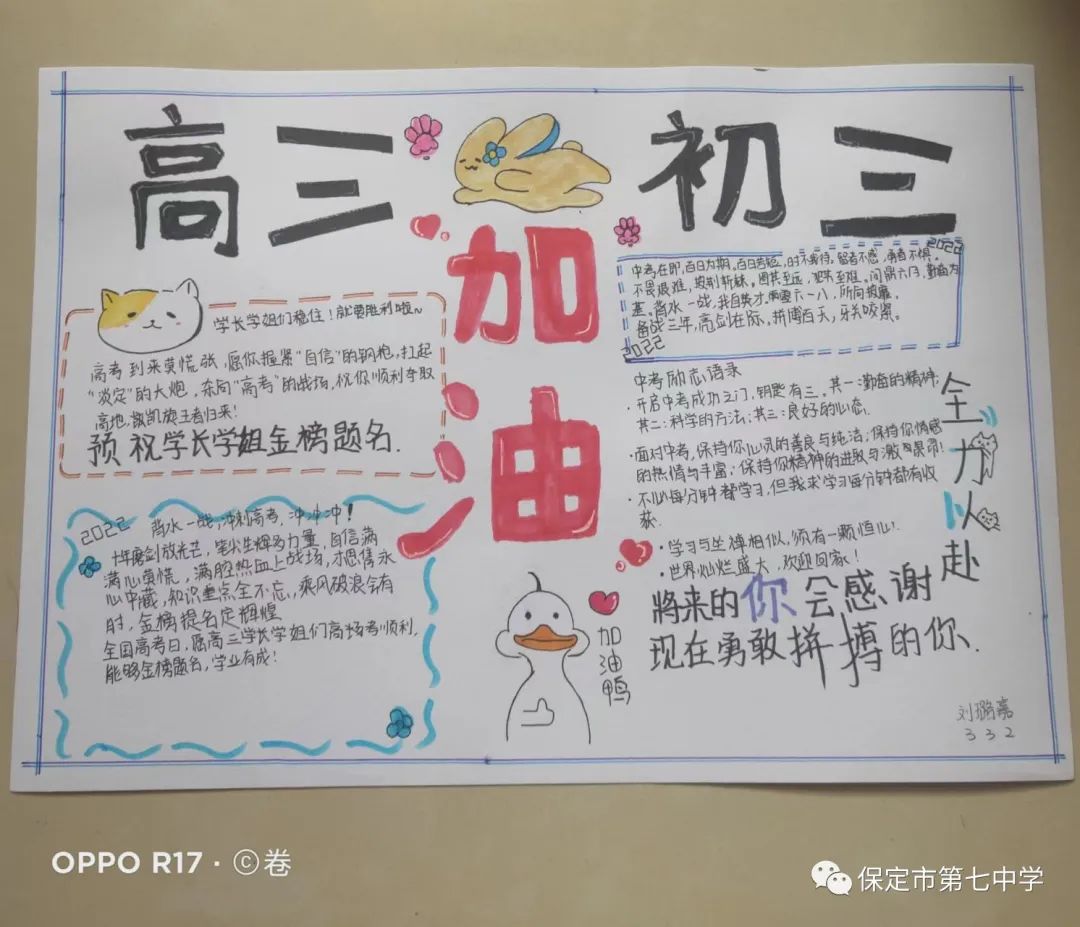 高三
初三
加油
学长学姐们稳住！就要胜利啦~
高考到来莫慌张，愿你握紧“自信”的钢枪，扛起
“淡定”的大炮，东向“高考”的战场，祝你顺利夺取
高地，敲凯旋王者归来！
预祝学长学姐金榜题名.
2022 背水一战，冲刺高考，冲冲冲！
十年磨剑放光芒，笔尖生辉多力量，自信满
满心莫慌，满腔热血上战场，才思隽永
心中藏，知识重点全不忘，乘风破浪会有
时，金榜提名定辉煌
全国高考日，愿高三学长学姐们高场考顺利，
能够金榜题名，学业有成！
2022
中考在即，百日为期。百日苦短，时不等待。智者不惑，勇者不惧。
不畏艰难，披荆斩棘。图其至远，把其至难。问鼎六月，勤奋为
基。背水一战，我自英才。两霸六一八，所向披靡。
备战三年，亮剑在际。拼搏百天，牙关咬紧。
2022
中考励志语录
·开启中考成功之门，钥匙有三。其一：勤奋的精神；
其二：科学的方法；其三：良好的心态.
·面对中考，保持你心灵的善良与纯洁；保持你情感
的热情与丰富；保持你精神的进取与激昂！
·不必每分钟都学习，但我求学习每分钟都有收
获.
·学习与坐禅相似，须有一颗恒心！
·世界灿烂盛大，欢迎回家！
全力以赴
将来的你会感谢
现在勇敢拼搏的你.
加油鸭
刘璐嘉
332
OPPO R17 · ©卷
保定市第七中学